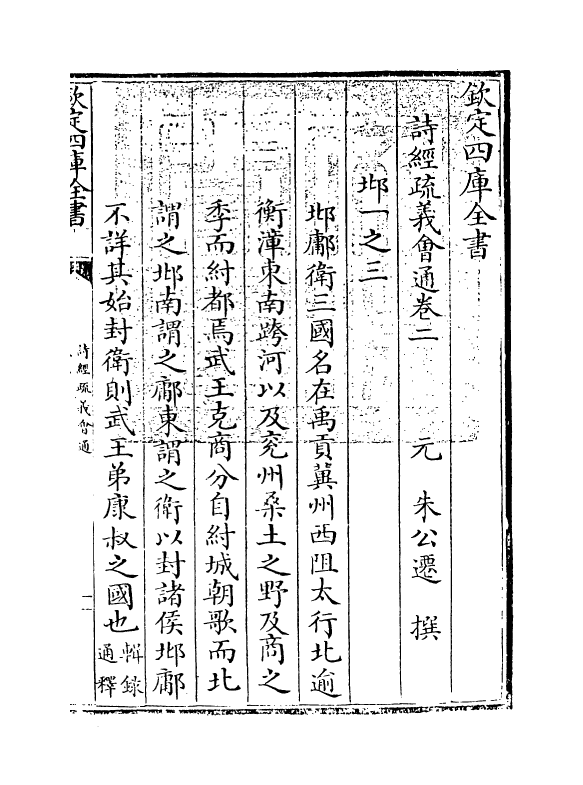 欽定四庫全書
詩經疏義會通卷二
元 朱公遷 撰
邶一之三
邶鄘衛三國名在禹貢冀州西阻太行北逾
衡漳東南跨河以及兖州桑土之野及商之
季而紂都焉武王克商分自紂城朝歌而北
謂之邶南謂之鄘東謂之衛以封諸侯邶鄘
不詳其始封衛則武王弟康叔之國也輯録
通釋
欽定四庫全書
詩經疏義會通
一